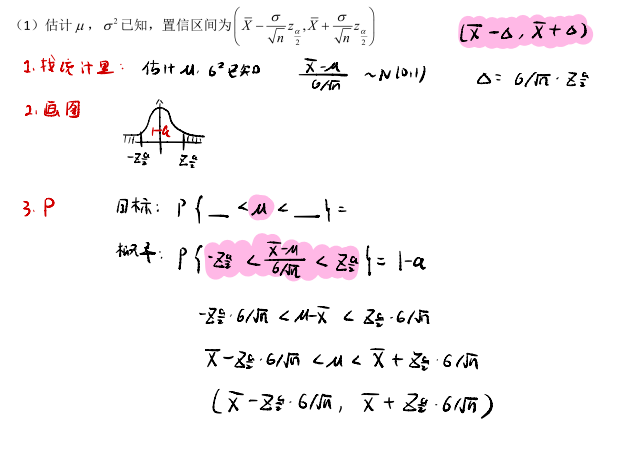 (1) 估计 μ, σ² 已知, 置信区间为 (X̄ − σ/√n z_{α/2}, X̄ + σ/√n z_{α/2})
(X̄ − Δ, X̄ + Δ)
1. 找统计量: 估计 μ, σ² 已知 (X̄−μ)/(σ/√n) ~ N(0,1) Δ = σ/√n · Z_{α/2}
2. 画图
1-α
-Z_{α/2} Z_{α/2}
3. P 目标: P{ __ < μ < __ } =
概率: P{ -Z_{α/2} < (X̄−μ)/(σ/√n) < Z_{α/2} } = 1-α
-Z_{α/2} · σ/√n < μ-X̄ < Z_{α/2} · σ/√n
X̄ - Z_{α/2} · σ/√n < μ < X̄ + Z_{α/2} · σ/√n
(X̄ - Z_{α/2} · σ/√n, X̄ + Z_{α/2} · σ/√n)